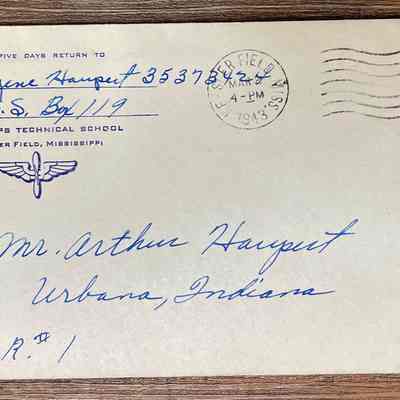 FIVE DAYS RETURN TO
gene Haupert 35373424
. S. Box 119
PS TECHNICAL SCHOOL
ER FIELD, MISSISSIPPI
KEESLER FIELD, MISS.
MAR 9
4-PM
1943
Mr. Arthur Haupert
Urbana, Indiana
R.#1